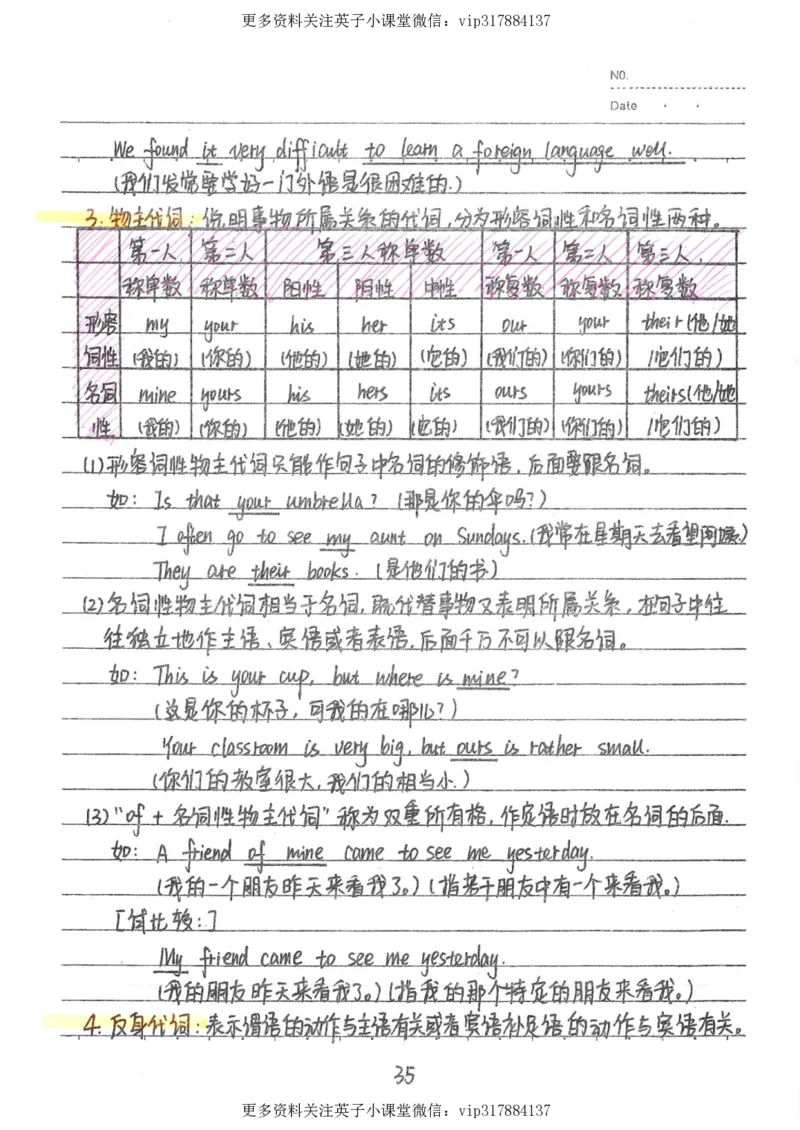 更多资料关注英子小课堂微信：vip317884137
NO.
Date
We found it very difficult to learn a foreign language well.
(我们发觉要学好一门外语是很困难的.)
3.物主代词：说明事物所属关系的代词,分为形容词性和名词性两种。
第一人 第二人 第三人称单数 第一人 第二人 第三人
称单数 称单数 阳性 阴性 中性 称复数 称复数 称复数
形容 my your his her its our your their(他/她
词性 (我的) (你的) (他的) (她的) (它的) (我们的) (你们的) /它们的)
名词 mine yours his hers its ours yours theirs(他/她
性 (我的) (你的) (他的) (她的) (它的) (我们的) (你们的) /它们的)
(1)形容词性物主代词只能作句子中名词的修饰语,后面要跟名词。
如：Is that your umbrella? (那是你的伞吗?)
I often go to see my aunt on Sundays.(我常在星期天去看望阿姨)
They are their books. (是他们的书)
(2)名词性物主代词相当于名词,既代替事物又表明所属关系,在句子中往
往独立地作主语、宾语或者表语,后面千万不可以跟名词。
如：This is your cup, but where is mine?
(这是你的杯子,可我的在哪儿?)
Your classroom is very big, but ours is rather small.
(你们的教室很大,我们的相当小.)
(3)"of + 名词性物主代词"称为双重所有格,作定语时放在名词的后面.
如：A friend of mine came to see me yesterday.
(我的一个朋友昨天来看我了。)(指若干朋友中有一个来看我。)
[试比较：]
My friend came to see me yesterday.
(我的朋友昨天来看我了。)(指我的那个特定的朋友来看我。)
4.反身代词：表示谓语的动作与主语有关或者宾语补足语的动作与宾语有关。
35
更多资料关注英子小课堂微信：vip317884137